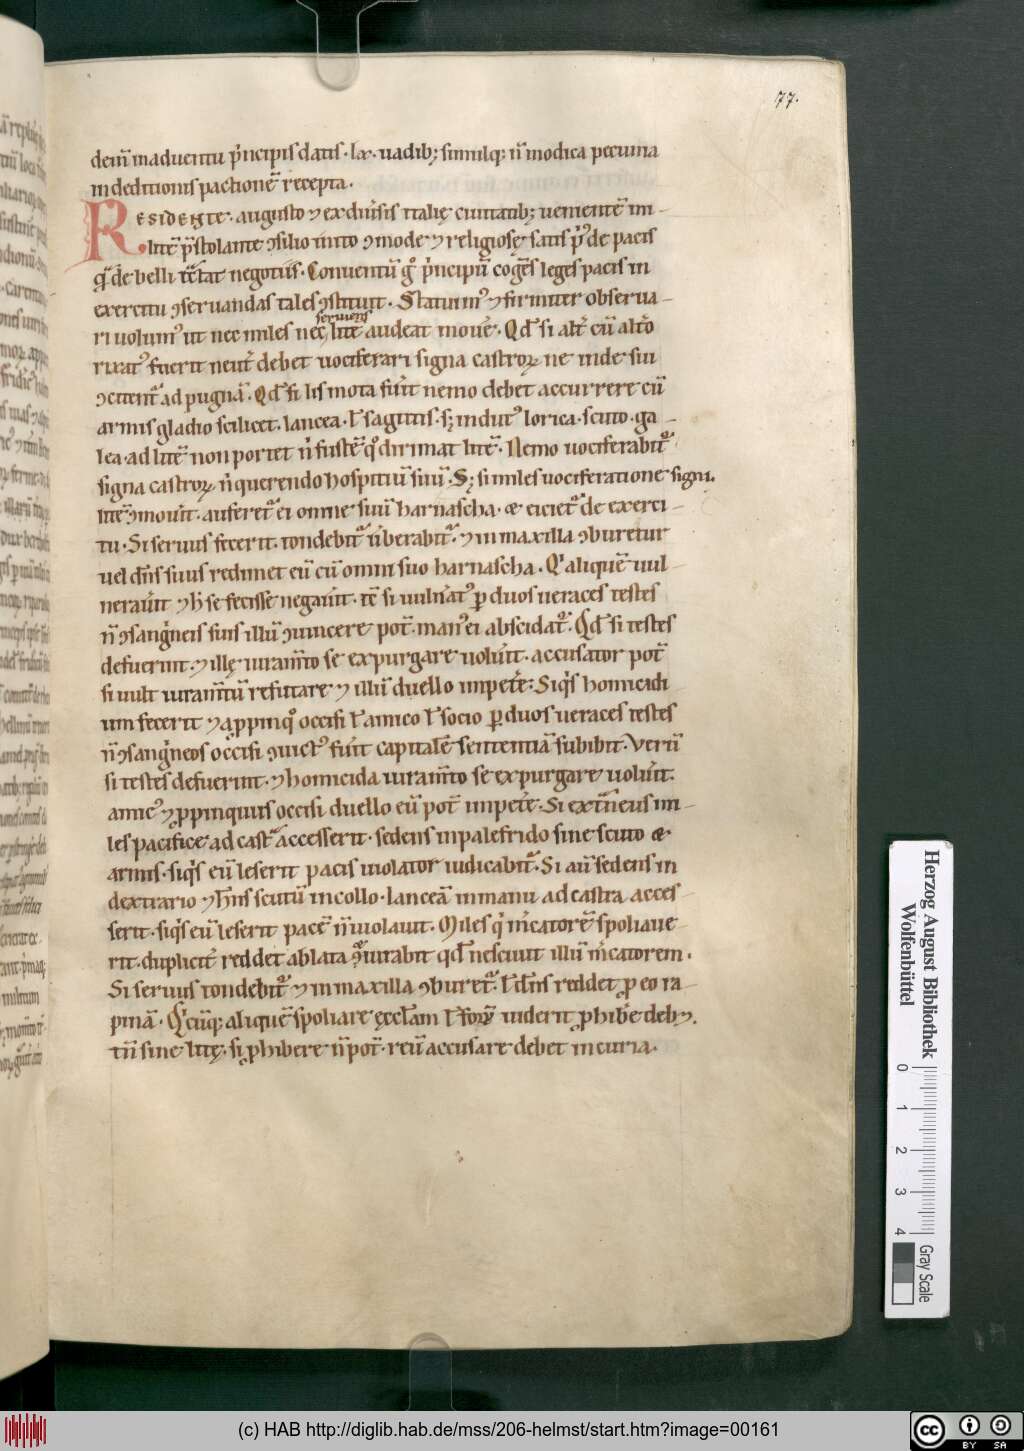 77.
dem̄ inaduentu p̄ncipis datis · lx · uadib; similq; n̄ modica pecunia
in deditionis pactionē recepta .
RESIDENTE · augusto ⁊ ex diūsis italię ciuitatib; uementē mi-
litē p̄stolante ↄsilio inito ↄmode ⁊ religiosę satis p̄ de pacis
q̄ de belli tc̄tat negotiis · Conuentū gͦ p̄ncipū cogēs leges pacis in
exercitu ↄseruandas tales ↄstituit · Statuim᷒ ⁊ firmiter obserua-
ri uolum᷒ ut nec miles nec seruiens litē audeat mouē · Qd̄ si alt̄ cū alt̄o
rixat᷒ fuerit neut̄ debet uociferari signa castroꝝ ne inde sui
ↄcitent᷑ ad pugnā · Qd̄ si lis mota fūit nemo debet accurrere cū
armis gladio scilicet · lancea · ł sagittis · s; indut᷒ lorica · scuto · ga-
lea · ad litē non portet n̄ fustē qͦ dirimat litē · Nemo uociferabit᷑
signa castroꝝ n̄ querendo hospitiū suū · S; si miles uociferatione signi
litē ↄmoūit · auferet᷑ ei omne suū harnascha · & eiciet᷑ de exerci-
tu · Si seruus fecerit · tondebit᷑ v̄berabit᷑ · ⁊ in maxilla ↄburetur
uel dn̄s suus redimet eū cū omni suo harnascha . Qͥ aliquē uul-
neraūit ⁊ h̄ se fecisse negaūit · tc̄ si uuln̄at᷒ ꝑ duos ueraces testes
n̄ ↄsangͥneis suis illū ↄuincere pot̄ · man᷒ ei abscidat᷑ · Qd̄ si testes
defuerint · ⁊ illę iuram̄to se expurgare uolūit · accusator pot̄
si uult iuram̄tū refutare ⁊ illū duello impetē : Siqͥs homicidi
um fecerit ⁊ a ꝓpinqͦ occisi ł amico ł socio ꝑ duos ueraces testes
n̄ ↄsangͥneos occisi ↄuict᷒ fūit capitalē sententiā subibit · Verū
si testes defuerint · ⁊ homicida iuram̄to se expurgare uolūit .
amic᷒ ⁊ ꝓpinquus occisi duello eū pot̄ impetē · Si ext̄neus mi-
les pacifice ad cast᷑ accesserit · sedens in palefrido sine scuto &
armis · siqͥs eū leserit pacis uiolator iudicabit᷑ · Si aū sedens in
dextrario ⁊ hn̄s scutū in collo · lanceā in manu ad castra acces-
serit · siqͥs eū leserit pacē n̄ uiolauit · Miles qͥ m̄catorē spoliaue-
rit · duplicit̄ reddet ablata ⁊ iurabit qd̄ nesciuit illū m̄catorem .
Si seruus tondebit᷑ ⁊ in maxilla ↄburet᷑ · ł dn̄s reddet ꝓ eo ra-
pinā · Qͥcūq; aliquē spoliare ęccl̄am ł forꝝ uiderit ꝓhibē deb; .
tn̄ sine litę · si ꝓhibere n̄ pot̄ · reū accusare debet in curia .
Herzog August Bibliothek
Wolfenbüttel
0 1 2 3 4
Gray Scale
(c) HAB http://diglib.hab.de/mss/206-helmst/start.htm?image=00161
cc BY SA